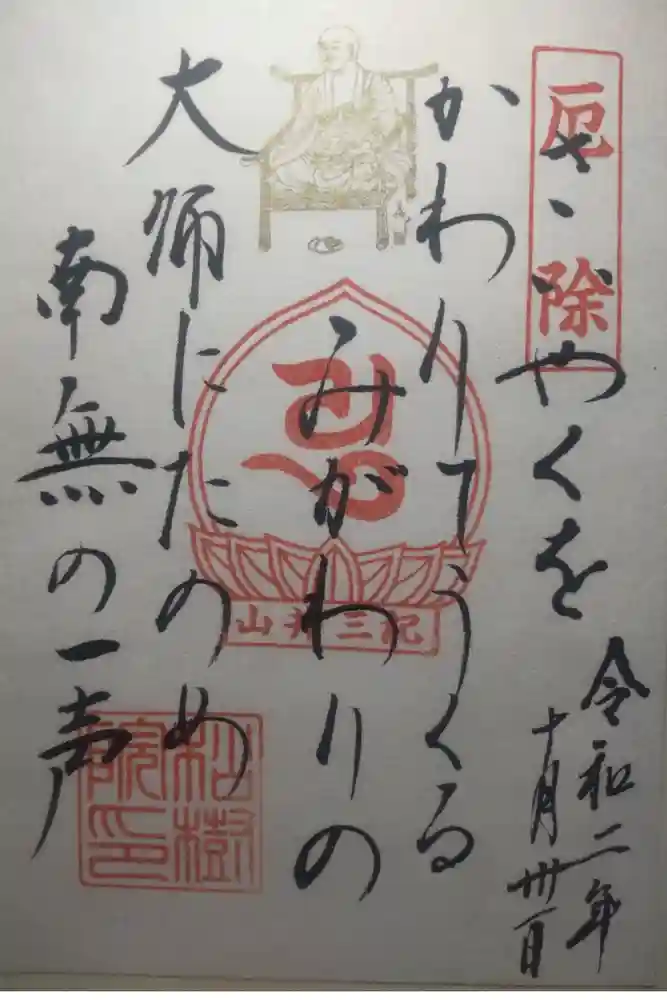 厄除
やくを
かわりてうくる
みがわりの
大師にたのめ
南無の一声
令和二年
十月卅一日
松樹院印